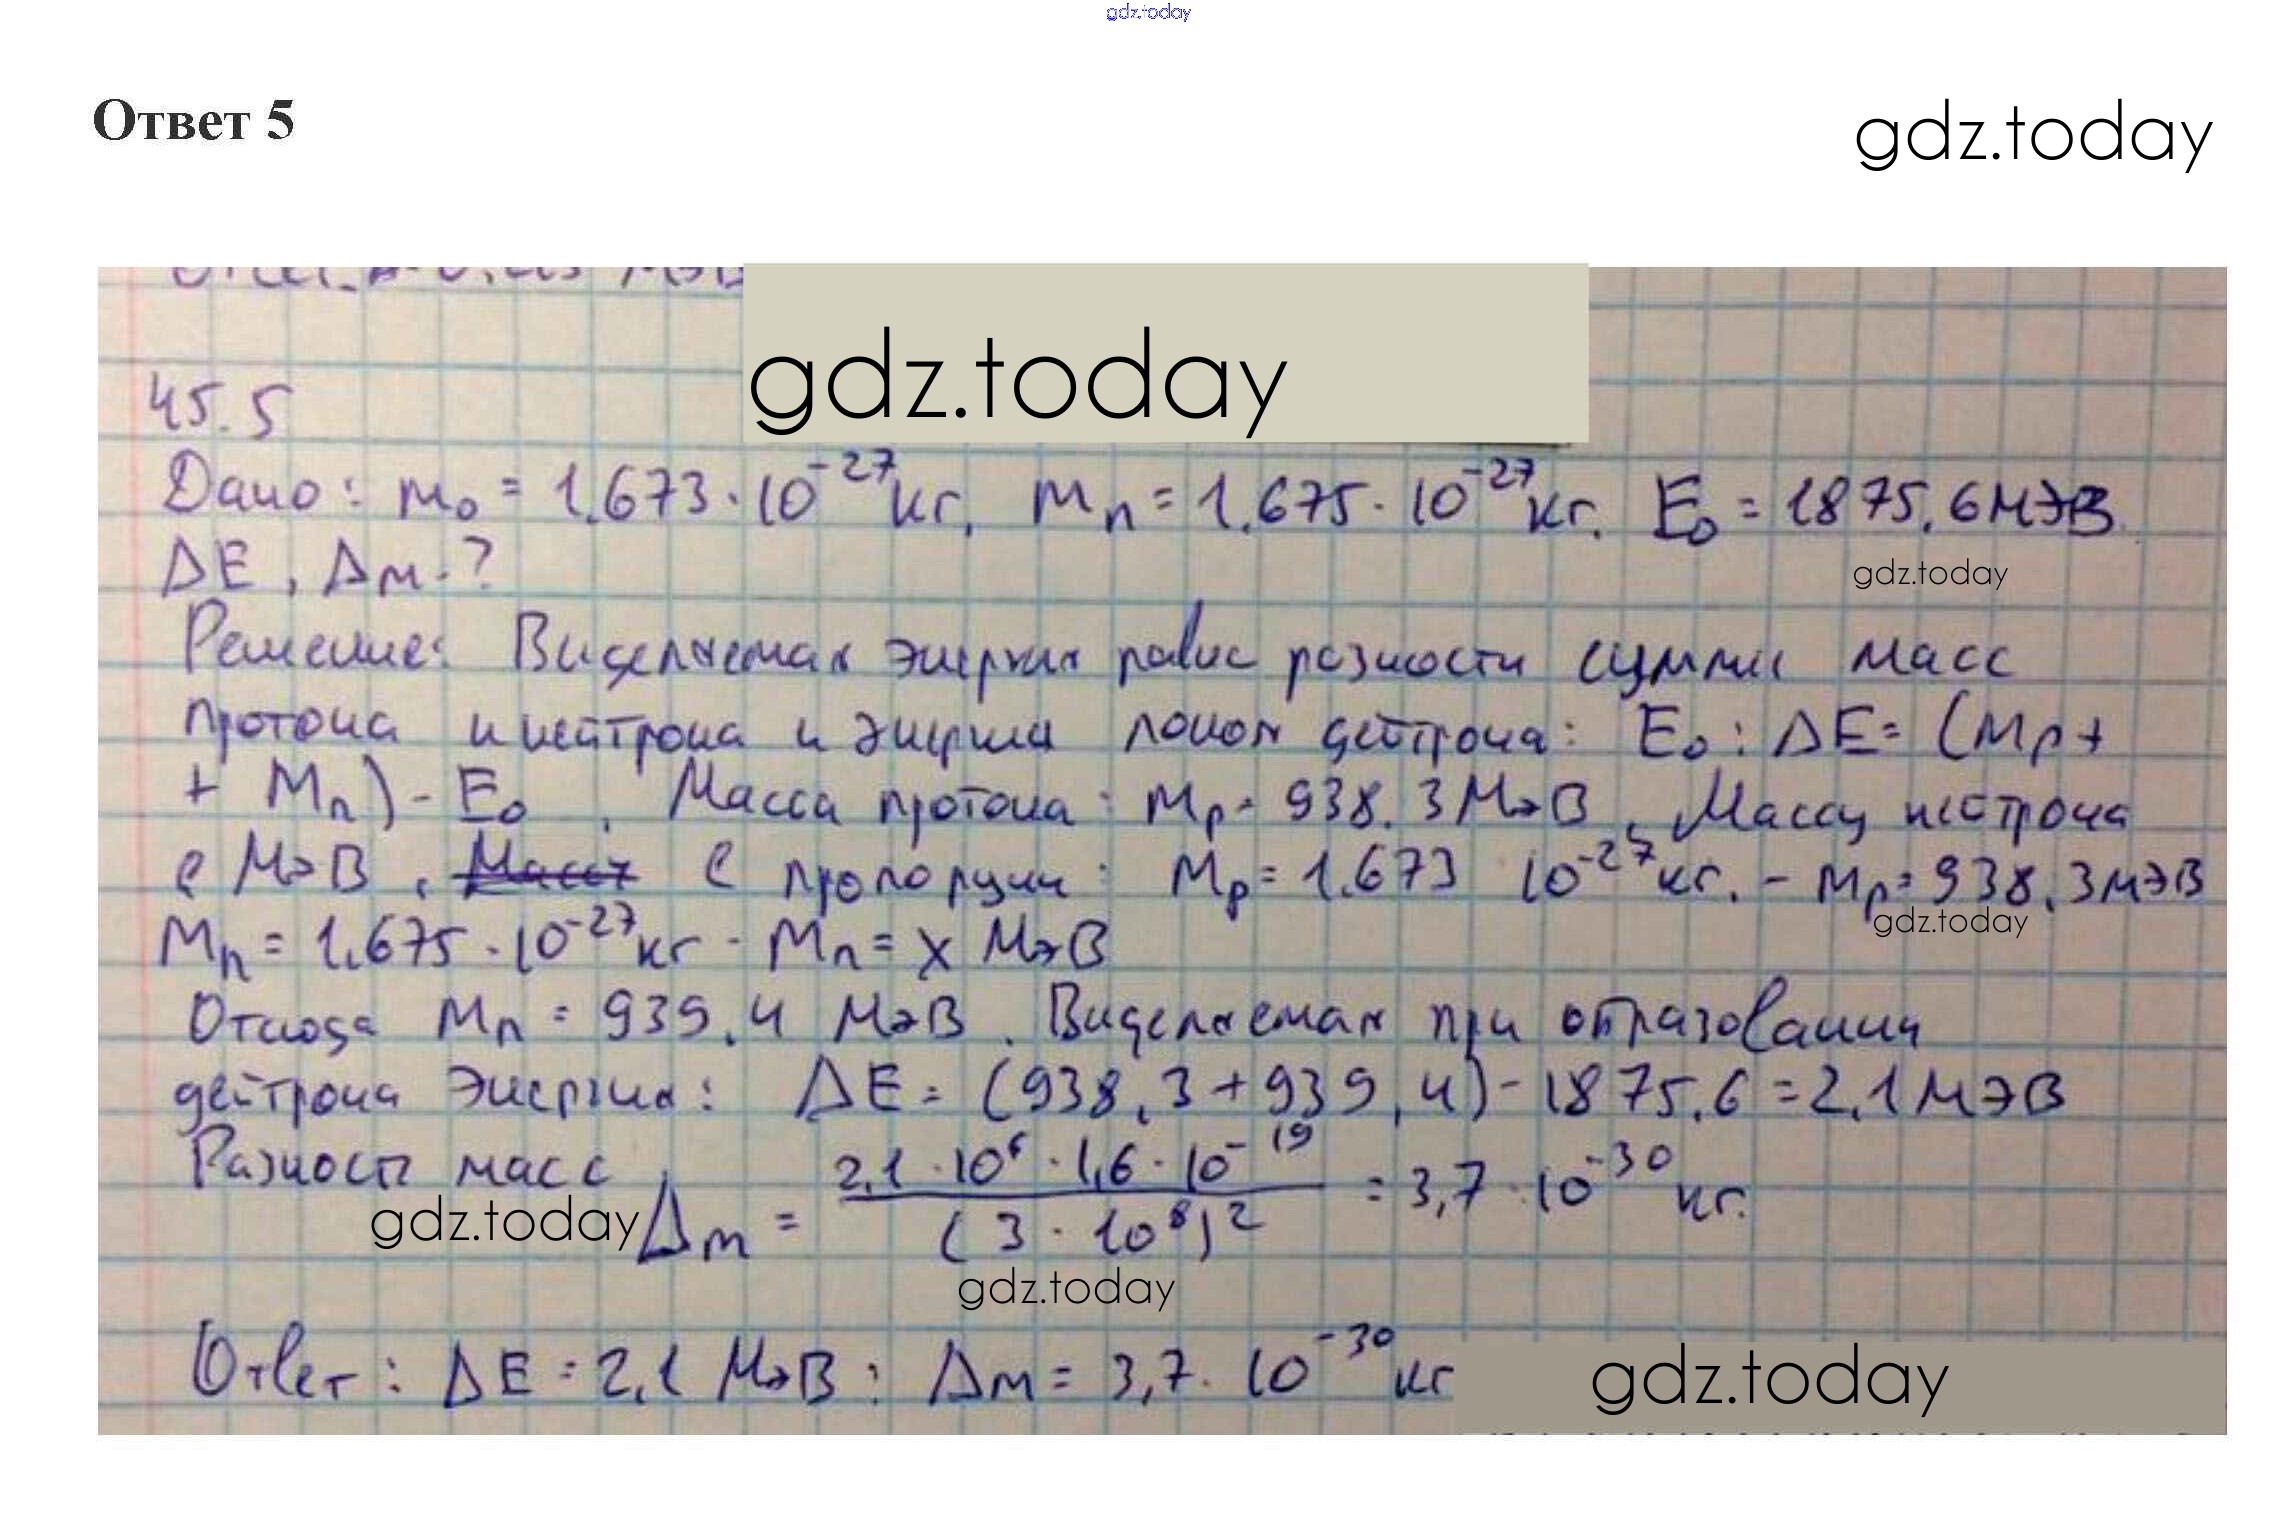 gdz.today
Ответ 5
gdz.today
gdz.today
45.5
Дано: m₀ = 1.673 · 10⁻²⁷ кг, mₙ = 1.675 · 10⁻²⁷ кг. E₀ = 1875.6 МэВ
ΔE, Δm - ?
gdz.today
Решение: Виделяемая энергия равна разности сумми масс
протона и нейтрона и энергии покоя дейтрона: E₀: ΔE = (Mp +
+ Mn) - E₀. Масса протона: Mp = 938.3 МэВ. Массу нейтрона
с МэВ. С пропорции: Mp = 1.673 10⁻²⁷ кг. - Mp = 938.3 МэВ
gdz.today
Mn = 1.675 · 10⁻²⁷ кг - Mn = x МэВ
Отсюда Mn = 939.4 МэВ. Виделяемая при образовании
дейтрона энергия: ΔE = (938.3 + 939,4) - 1875.6 = 2.1 МэВ
Разность масс Δm = 2.1 · 10⁶ · 1,6 · 10⁻¹⁹ / (3 · 10⁸)² = 3,7 · 10⁻³⁰ кг.
gdz.today
gdz.today
Ответ: ΔE = 2,1 МэВ; Δm = 3,7 · 10⁻³⁰ кг
gdz.today